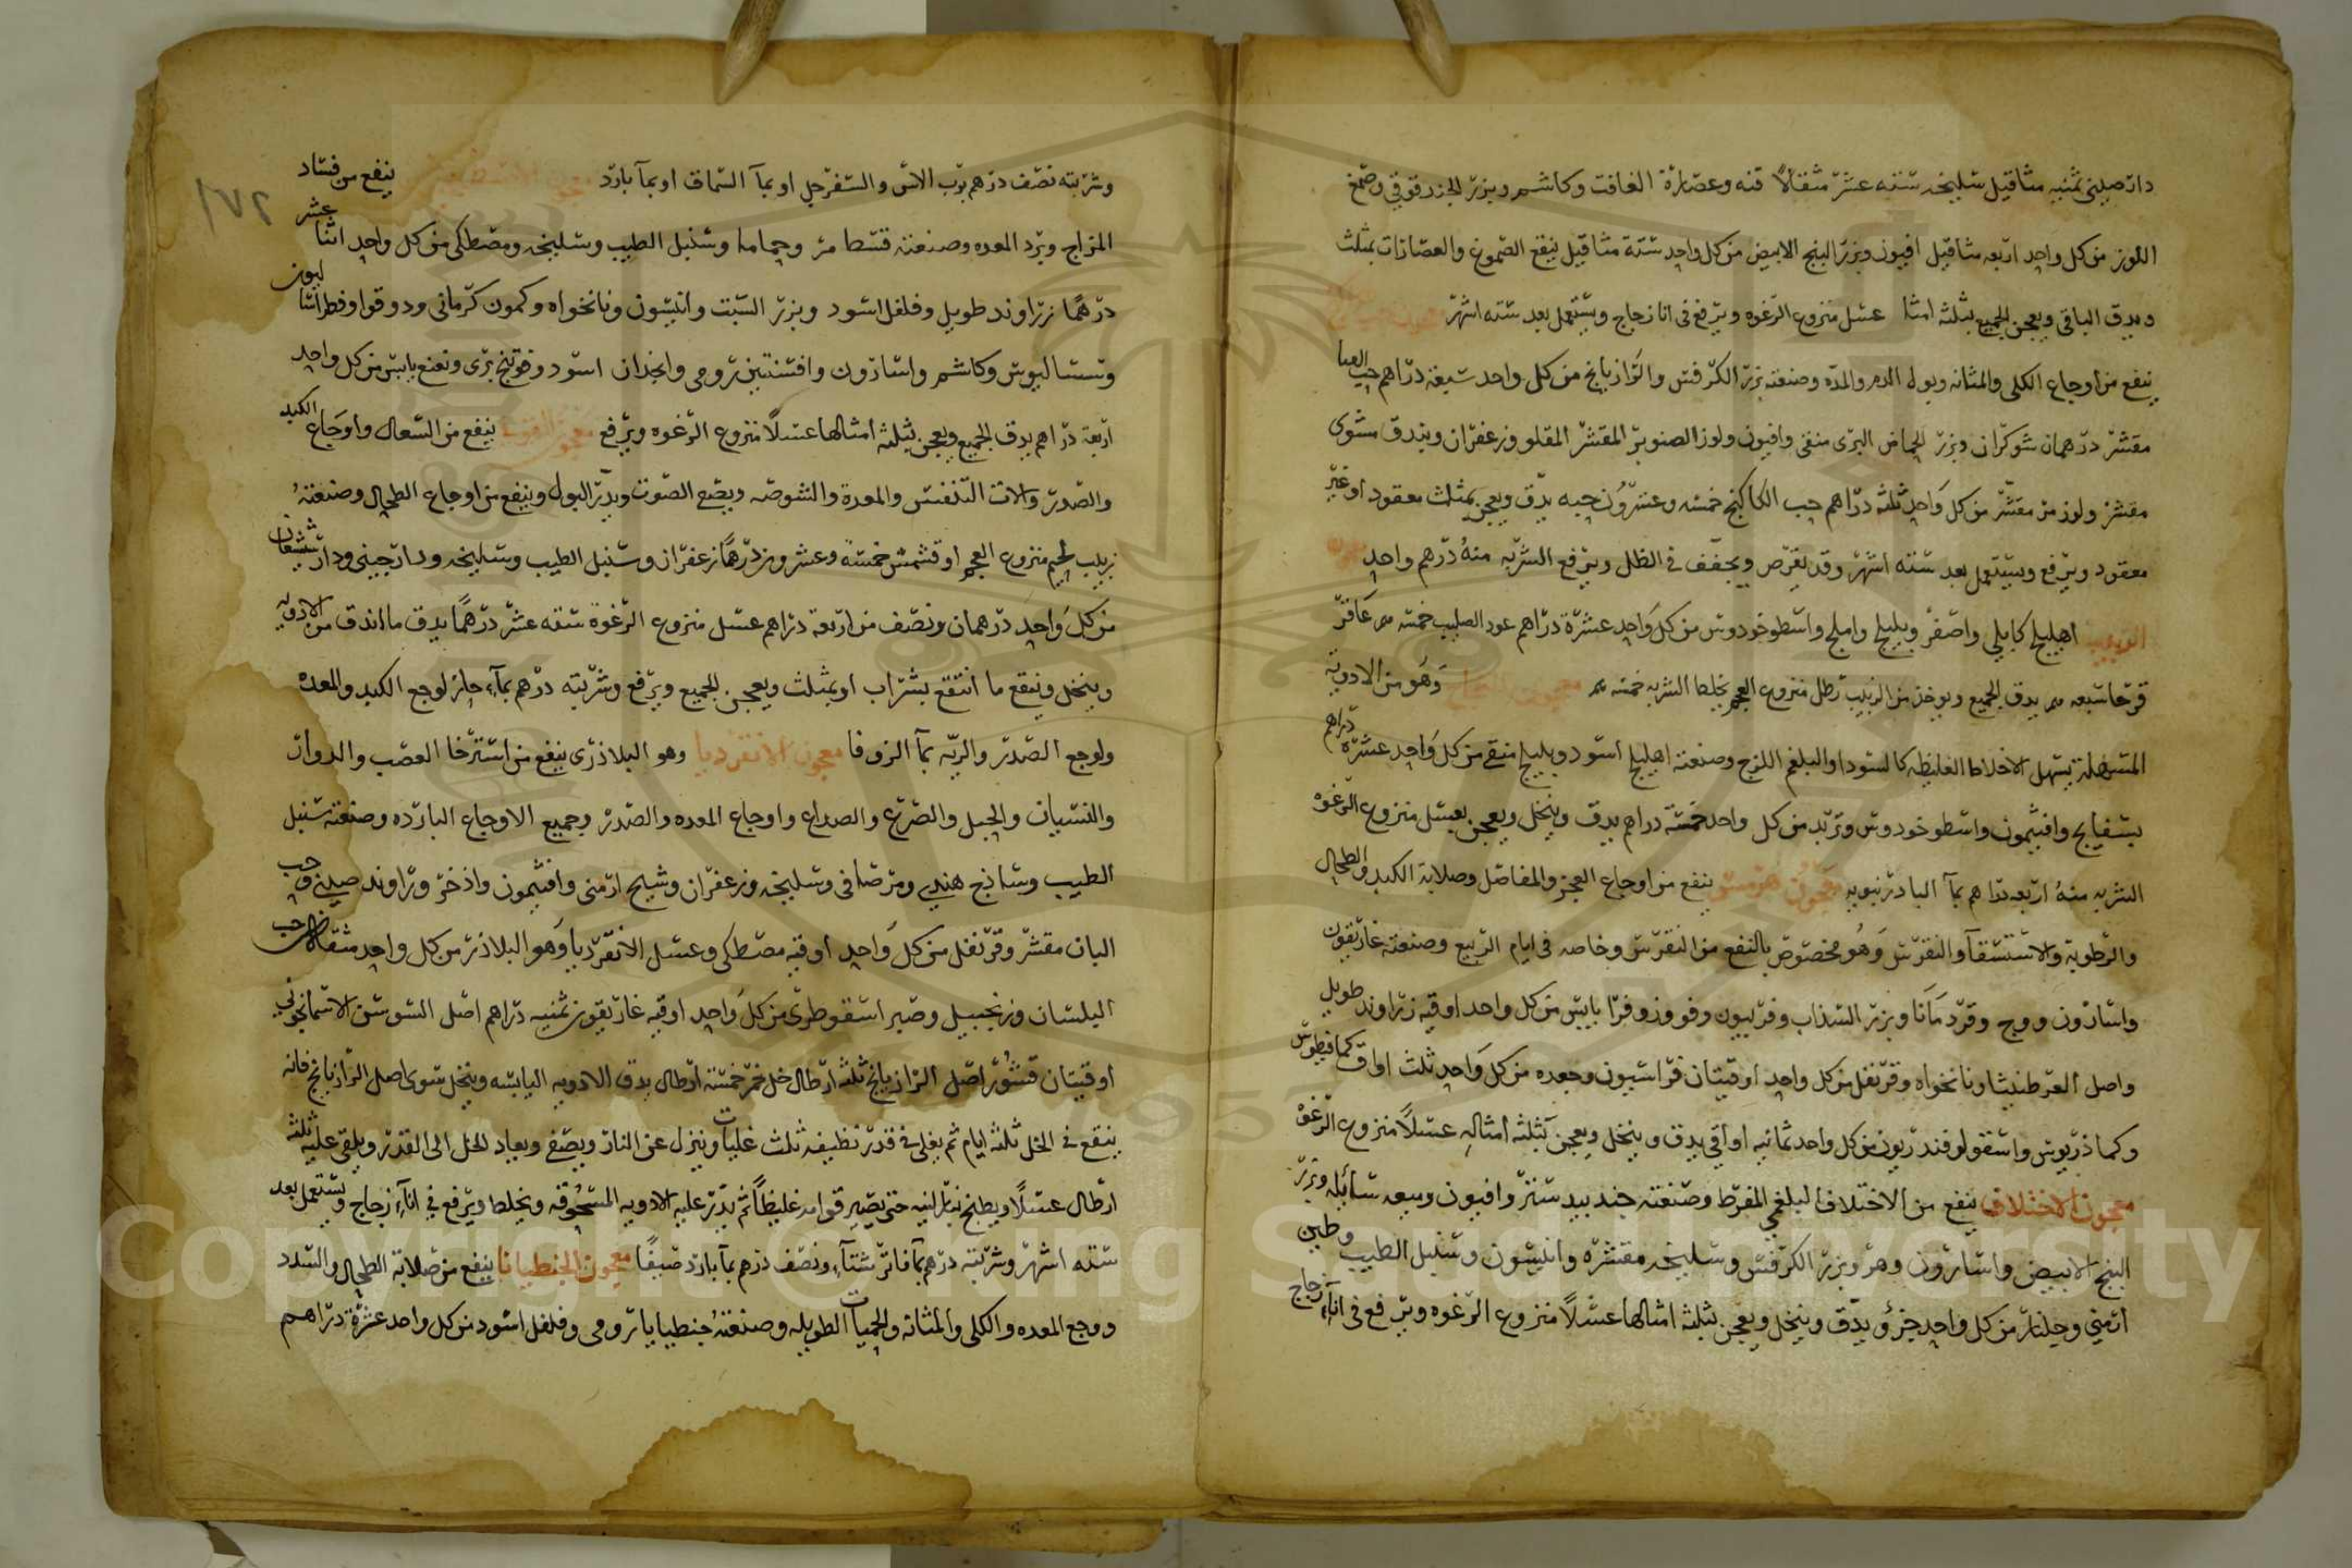 دارصيني ثمنيه مثاقيل سليخه ستة عشر مثقالاً قنه وعصارة الغافت وكاشم وبزر الجزر قوقي وصمغ
اللوز من كل واحد اربعه مثاقيل افيون وبزر البنج الابيض من كل واحد ستة مثاقيل ينقع الصموغ والعصارات بمثلث
ويدق الباقي ويعجن الجميع بثلثه امثا عسل منزوع الرغوه ويرفع في انا زجاج ويستعمل بعد ستة اشهر
ينفع من اوجاع الكلى والمثانه وبول الدم والمدّه وصنعته بزر الكرفس والرازيانج من كل واحد سبعة دراهم حب
مقشر درهمان شوكران وبزر الحماض البرى منقى وافيون ولوز الصنوبر المقشر المقلو وزعفران وبندق مشوى
مقشر ولوز مر مقشر من كل واحد ثلثه دراهم حب الكاكنج خمسه وعشرون حبه يدق ويعجن بمثلث معقود او غير
معقود ويرفع ويستعمل بعد ستة اشهر وقد يقرص ويجفف في الظل ويرفع الشربه منه درهم واحد
الزبيب اهليلج كابلي واصفر وبليلج واملج واسطوخودوس من كل واحد عشرة دراهم عود الصليب خمسه عاقر
قرحا سبعه يدق الجميع ويوخذ من الزبيب رطل منزوع العجم يخلط الشربه خمسه وهو من الادوية
المسهلة يسهل الاخلاط الغليظه كالسودا والبلغم اللزج وصنعته اهليلج اسود وبليلج منقى من كل واحد عشرة دراهم
بسفايج وافيثمون واسطوخودوس وتربد من كل واحد خمسة دراهم يدق وينخل ويعجن بعسل منزوع الرغوه
الشربه منه اربعه دراهم بمآ البادرنبويه معجون هرمس ينفع من اوجاع العجز والمفاصل وصلابة الكبد والطحال
والرطوبة والاستسقآ والنقرس وهو مخصوص بالنفع من النقرس وخاصه في ايام الربيع وصنعته غاريقون
واسارون ووج وقردمانا وبزر السذاب وفربيون وفو وزوفرا يابس من كل واحد اوقيه زراوند طويل
واصل العرطنيثا ونانخواه وقرنفل من كل واحد اوقيتان فراسيون وجعده من كل واحد ثلث اواق كمافيطوس
وكماذريوس واسقولوفندريون من كل واحد ثمانيه اواقي يدق وينخل ويعجن بثلثه امثاله عسلاً منزوع الرغوه
معجون الاختلاف ينفع من الاختلاف البلغمي المفرط وصنعته جندبيدستر وافيون وميعه سائله وبزر
البنج الابيض واسارون ومر وبزر الكرفس وسليخه مقشره وانيسون وسنبل الطيب وطين
ارمني وجلنار من كل واحد جزؤ يدق وينخل ويعجن بثلثه امثالها عسلاً منزوع الرغوه ويرفع في انآء زجاج
١٧٢
وشربته نصف درهم برب الاس والسفرجل او بمآ السماق او بمآ بارد ينفع من فساد
المزاج وبرد المعده وصنعته قسط مر وحماما وسنبل الطيب وسليخه ومصطكى من كل واحد اثنا عشر
درهمًا زراوند طويل وفلفل اسود وبزر السبت وانيسون ونانخواه وكمون كرماني ودوقو اوفطراساليون
وسساليوس وكاشم واسارون وافسنتين رومي وانجدان اسود وفوتنج برى ونعنع يابس من كل واحد
اربعة دراهم يدق الجميع ويعجن بثلثه امثالها عسلاً منزوع الرغوه ويرفع ينفع من السعال واوجاع الكبد
والصدر والات التنفس والمعدة والشوصه ويصح الصوت ويدر البول وينفع من اوجاع الطحال وصنعته
زبيب لحيم منزوع العجم او قشمش خمسة وعشرون درهمًا زعفران وسنبل الطيب وسليخه ودارجيني ودارشيشعان
من كل واحد درهمان ونصف من اربعة دراهم عسل منزوع الرغوة ستة عشر درهمًا يدق ما اندق من الادويه
وينخل وينقع ما انتقع بشراب او بمثلث ويعجن الجميع ويرفع وشربته درهم بمآء حار لوجع الكبد والمعده
ولوجع الصدر والريه بمآ الزوفا معجون الانقرديا وهو البلاذرى ينفع من استرخا العصب والدوار
والنسيان والحبل والصرع والصداع واوجاع المعده والصدر وجميع الاوجاع البارده وصنعته سنبل
الطيب وساذج هندي ومر صافى وسليخه وزعفران وشيح ارمني وافيثمون واذخر وراوند صيني وحب
البان مقشر وقرنفل من كل واحد اوقيه مصطكى وعسل الانقرديا وهو البلاذر من كل واحد مثقالان حب
البلسان وزنجبيل وصبر اسقوطرى من كل واحد اوقيه غاريقون ثمنيه دراهم اصل السوسن الاسمانجوني
اوقيتان قشور اصل الرازيانج ثلثه ارطال خل خمر خمسة ارطال يدق الادويه اليابسه وينخل سوى اصل الرازيانج فانه
ينقع في الخل ثلثه ايام ثم يغلى في قدر نظيفه ثلث غليات وينزل عن النار ويصفى ويعاد الخل الى القدر ويلقى عليه ثلثه
ارطال عسلاً ويطبخ بنار لينه حتى يصير قوامه غليظاً ثم يذر عليه الادويه المسحوقه ويخلط ويرفع في انآء زجاج ويستعمل بعد
ستة اشهر وشربته درهم بمآ فاتر شتآء ونصف درهم بمآ بارد صيفًا معجون الجنطيانا ينفع من صلابة الطحال والسدد
ووجع المعده والكلى والمثانه والحميات الطويله وصنعته جنطيانا رومي وفلفل اسود من كل واحد عشرة دراهم
Copyright © King Saud University